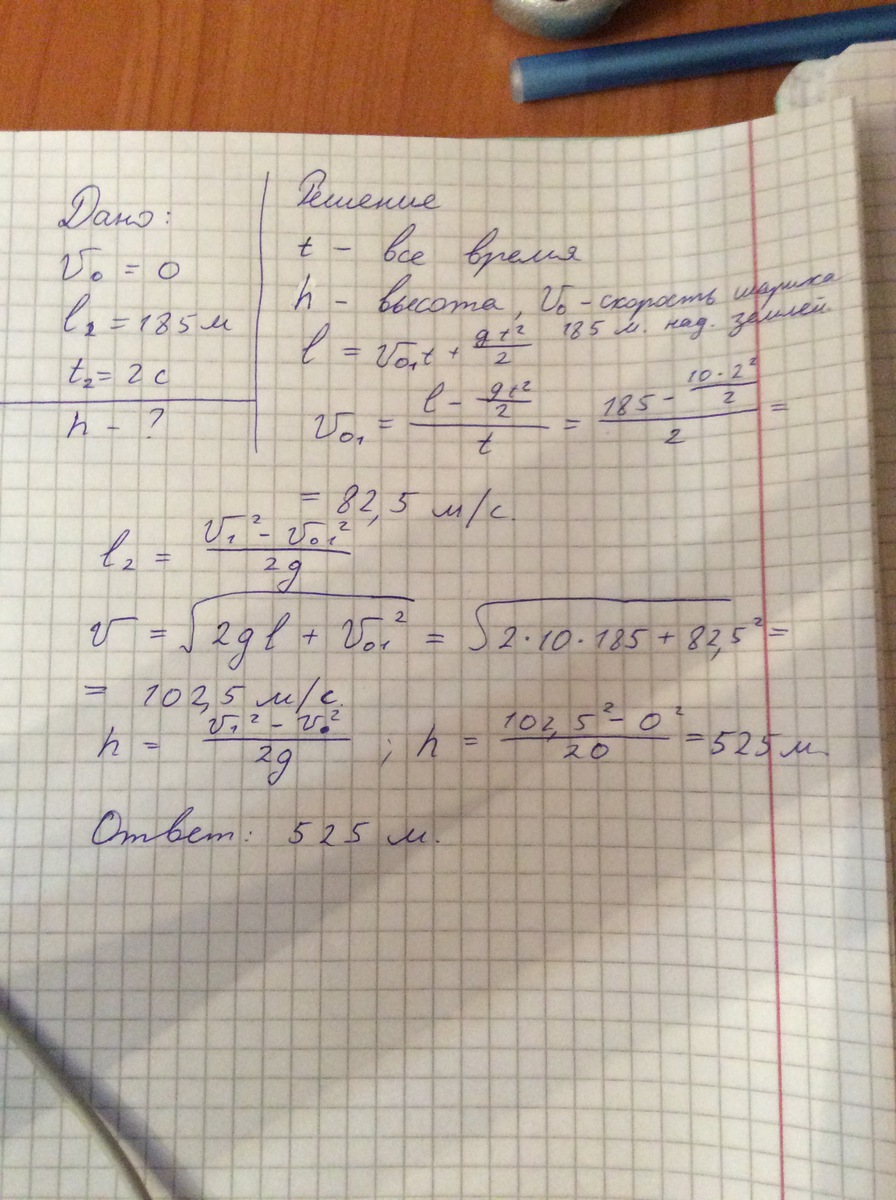 Дано:
V₀ = 0
l₂ = 185 м
t₂ = 2 с
h - ?
Решение
t - все время
h - высота, V₀ - скорость шарика
185 м. над. землей
l = V₀₁t + gt²/2
V₀₁ = (l - gt²/2)/t = (185 - 10·2²/2)/2 =
= 82,5 м/с.
l₂ = (V₁² - V₀₁²)/2g
V = √(2gl + V₀₁²) = √(2·10·185 + 82,5²) =
= 102,5 м/с.
h = (V₁² - V₀²)/2g ; h = (102,5² - 0²)/20 = 525 м
Ответ: 525 м.